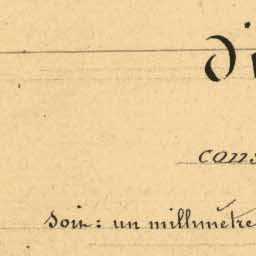 d'
cons
Soit : un millimètre